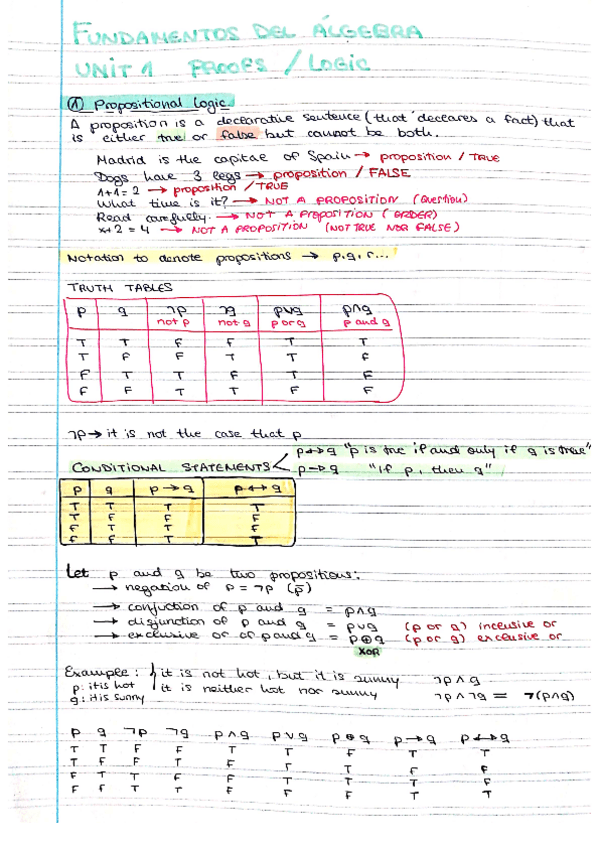 FUNDAMENTOS DEL ÁLGEBRA
UNIT 1 PROOFS / LOGIC
① Propositional Logic.
A proposition is a declarative sentence (that declares a fact) that
is either true or false but cannot be both.
Madrid is the capital of Spain → proposition / TRUE
Dogs have 3 legs → proposition / FALSE
1+1=2 → proposition / TRUE
What time is it? → NOT A PROPOSITION (Question)
Read carefully. → NOT A PROPOSITION (ORDER)
x+2=4 → NOT A PROPOSITION (NOT TRUE NOR FALSE)
Notation to denote propositions → p, q, r...
TRUTH TABLES
p q ¬p ¬q p∨q p∧q
not p not q p or q p and q
T T F F T T
T F F T T F
F T T F T F
F F T T F F
¬p → it is not the case that p
p↔q "p is true if and only if q is true"
CONDITIONAL STATEMENTS p→q "If p, then q"
p q p→q p↔q
T T T T
T F F F
F T T F
F F T T
Let p and q be two propositions:
→ negation of p = ¬p (p̄)
→ conjuction of p and q = p∧q
→ disjunction of p and q = p∨q (p or q) inclusive or
→ exclusive or of p and q = p⊕q (p or q) exclusive or
XOR
Example: it is not hot, but it is sunny ¬p∧q
p: it is hot it is neither hot nor sunny ¬p∧¬q = ¬(p∧q)
q: it is sunny
p q ¬p ¬q p∧q p∨q p⊕q p→q p↔q
T T F F T T F T T
T F F T F T T F F
F T T F F T T T F
F F T T F F F T T